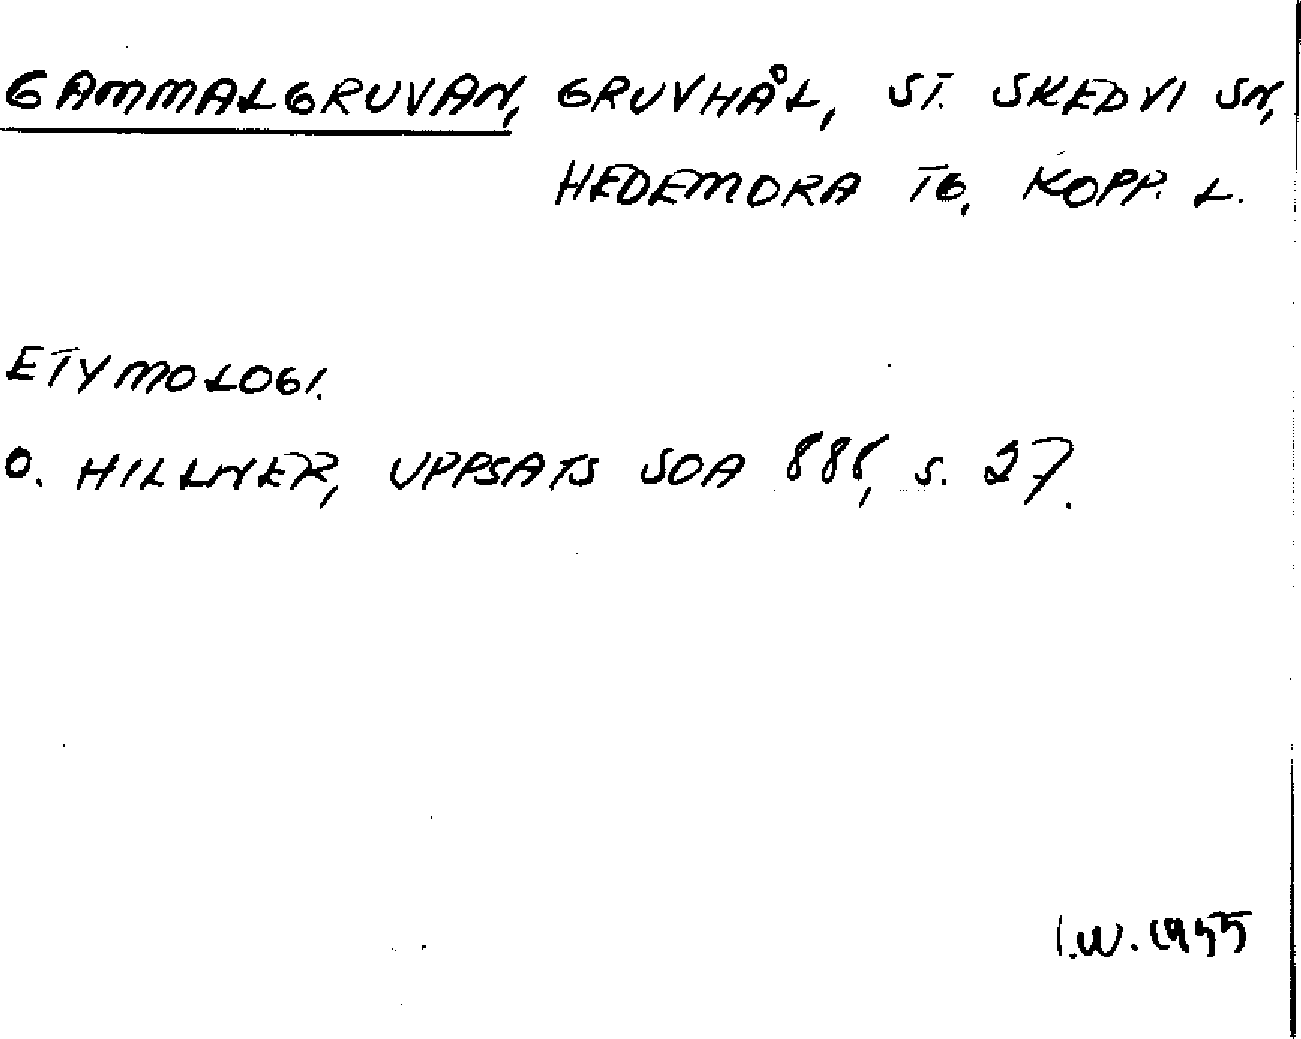 GAMMALGRUVAN, GRUVHÅL, ST. SKEDVI SN,
HEDEMORA TG, KOPP. L.
ETYMOLOGI.
O. HILLNER, UPPSATS SOA 888, S. 27.
I.W. 1955